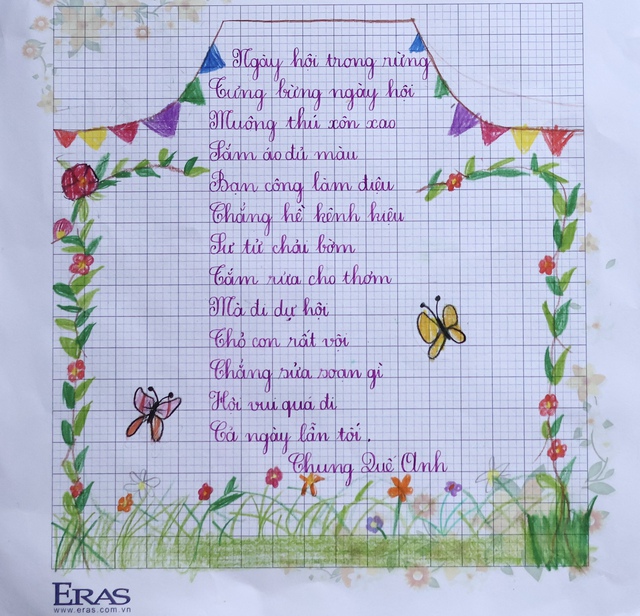 Ngày hội trong rừng
Tưng bừng ngày hội
Muông thú xôn xao
Sắm áo đủ màu
Bạn công làm điệu
Chẳng hề kênh kiệu
Sư tử chải bờm
Tắm rửa cho thơm
Mà đi dự hội
Thỏ con rất vội
Chẳng sửa soạn gì
Hội vui quá đi
Cả ngày lẫn tối.
Chung Quế Anh
ERAS
www.eras.com.vn